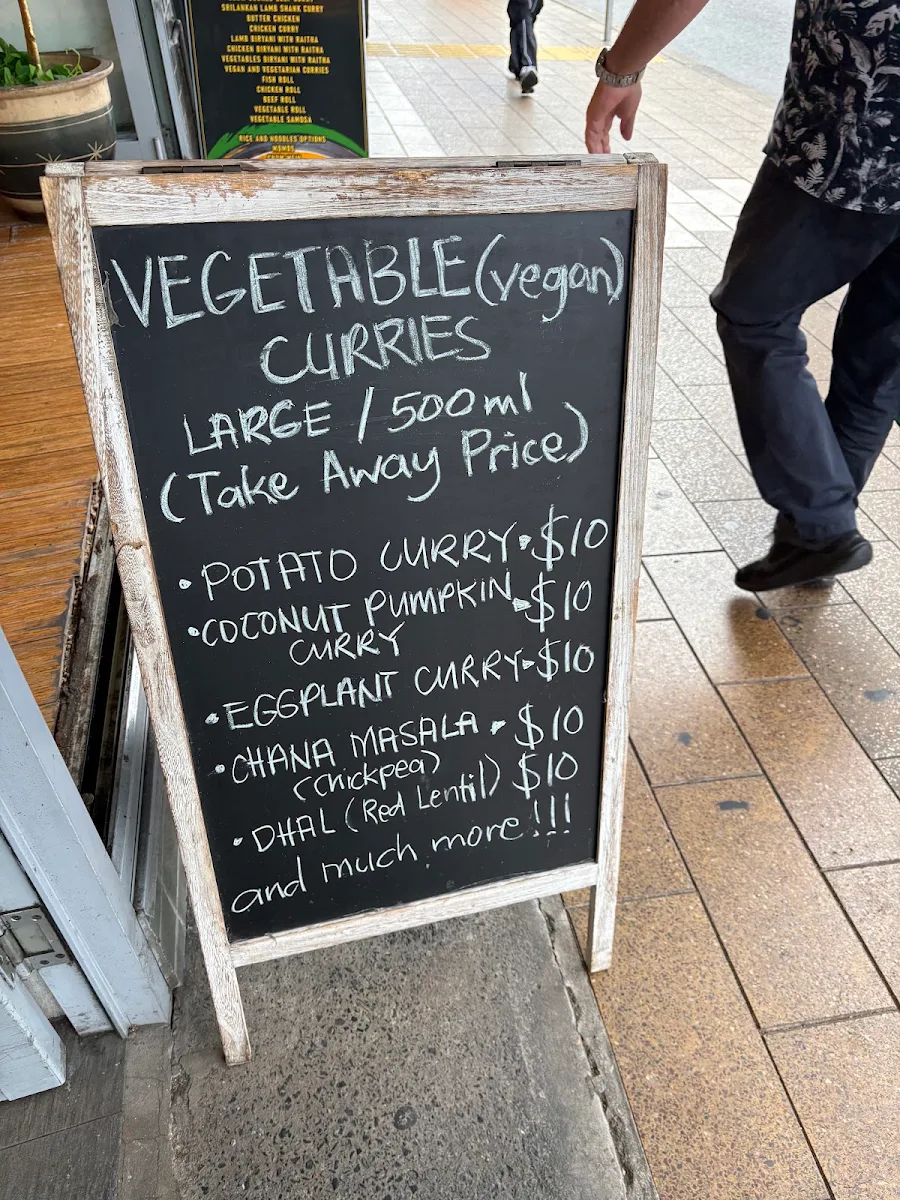 SRILANKAN LAMB SHANK CURRY
BUTTER CHICKEN
CHICKEN CURRY
LAMB BIRYANI WITH RAITHA
CHICKEN BIRYANI WITH RAITHA
VEGETABLES BIRYANI WITH RAITHA
VEGAN AND VEGETARIAN CURRIES
FISH ROLL
CHICKEN ROLL
BEEF ROLL
VEGETABLE ROLL
VEGETABLE SAMOSA
RICE AND NOODLES OPTIONS
MOMOS
VEGETABLE (vegan)
CURRIES
LARGE / 500ml
(Take Away Price)
• POTATO CURRY - $10
• COCONUT PUMPKIN - $10
CURRY
• EGGPLANT CURRY - $10
• CHANA MASALA - $10
(Chickpea)
• DHAL (Red Lentil) $10
and much more!!!